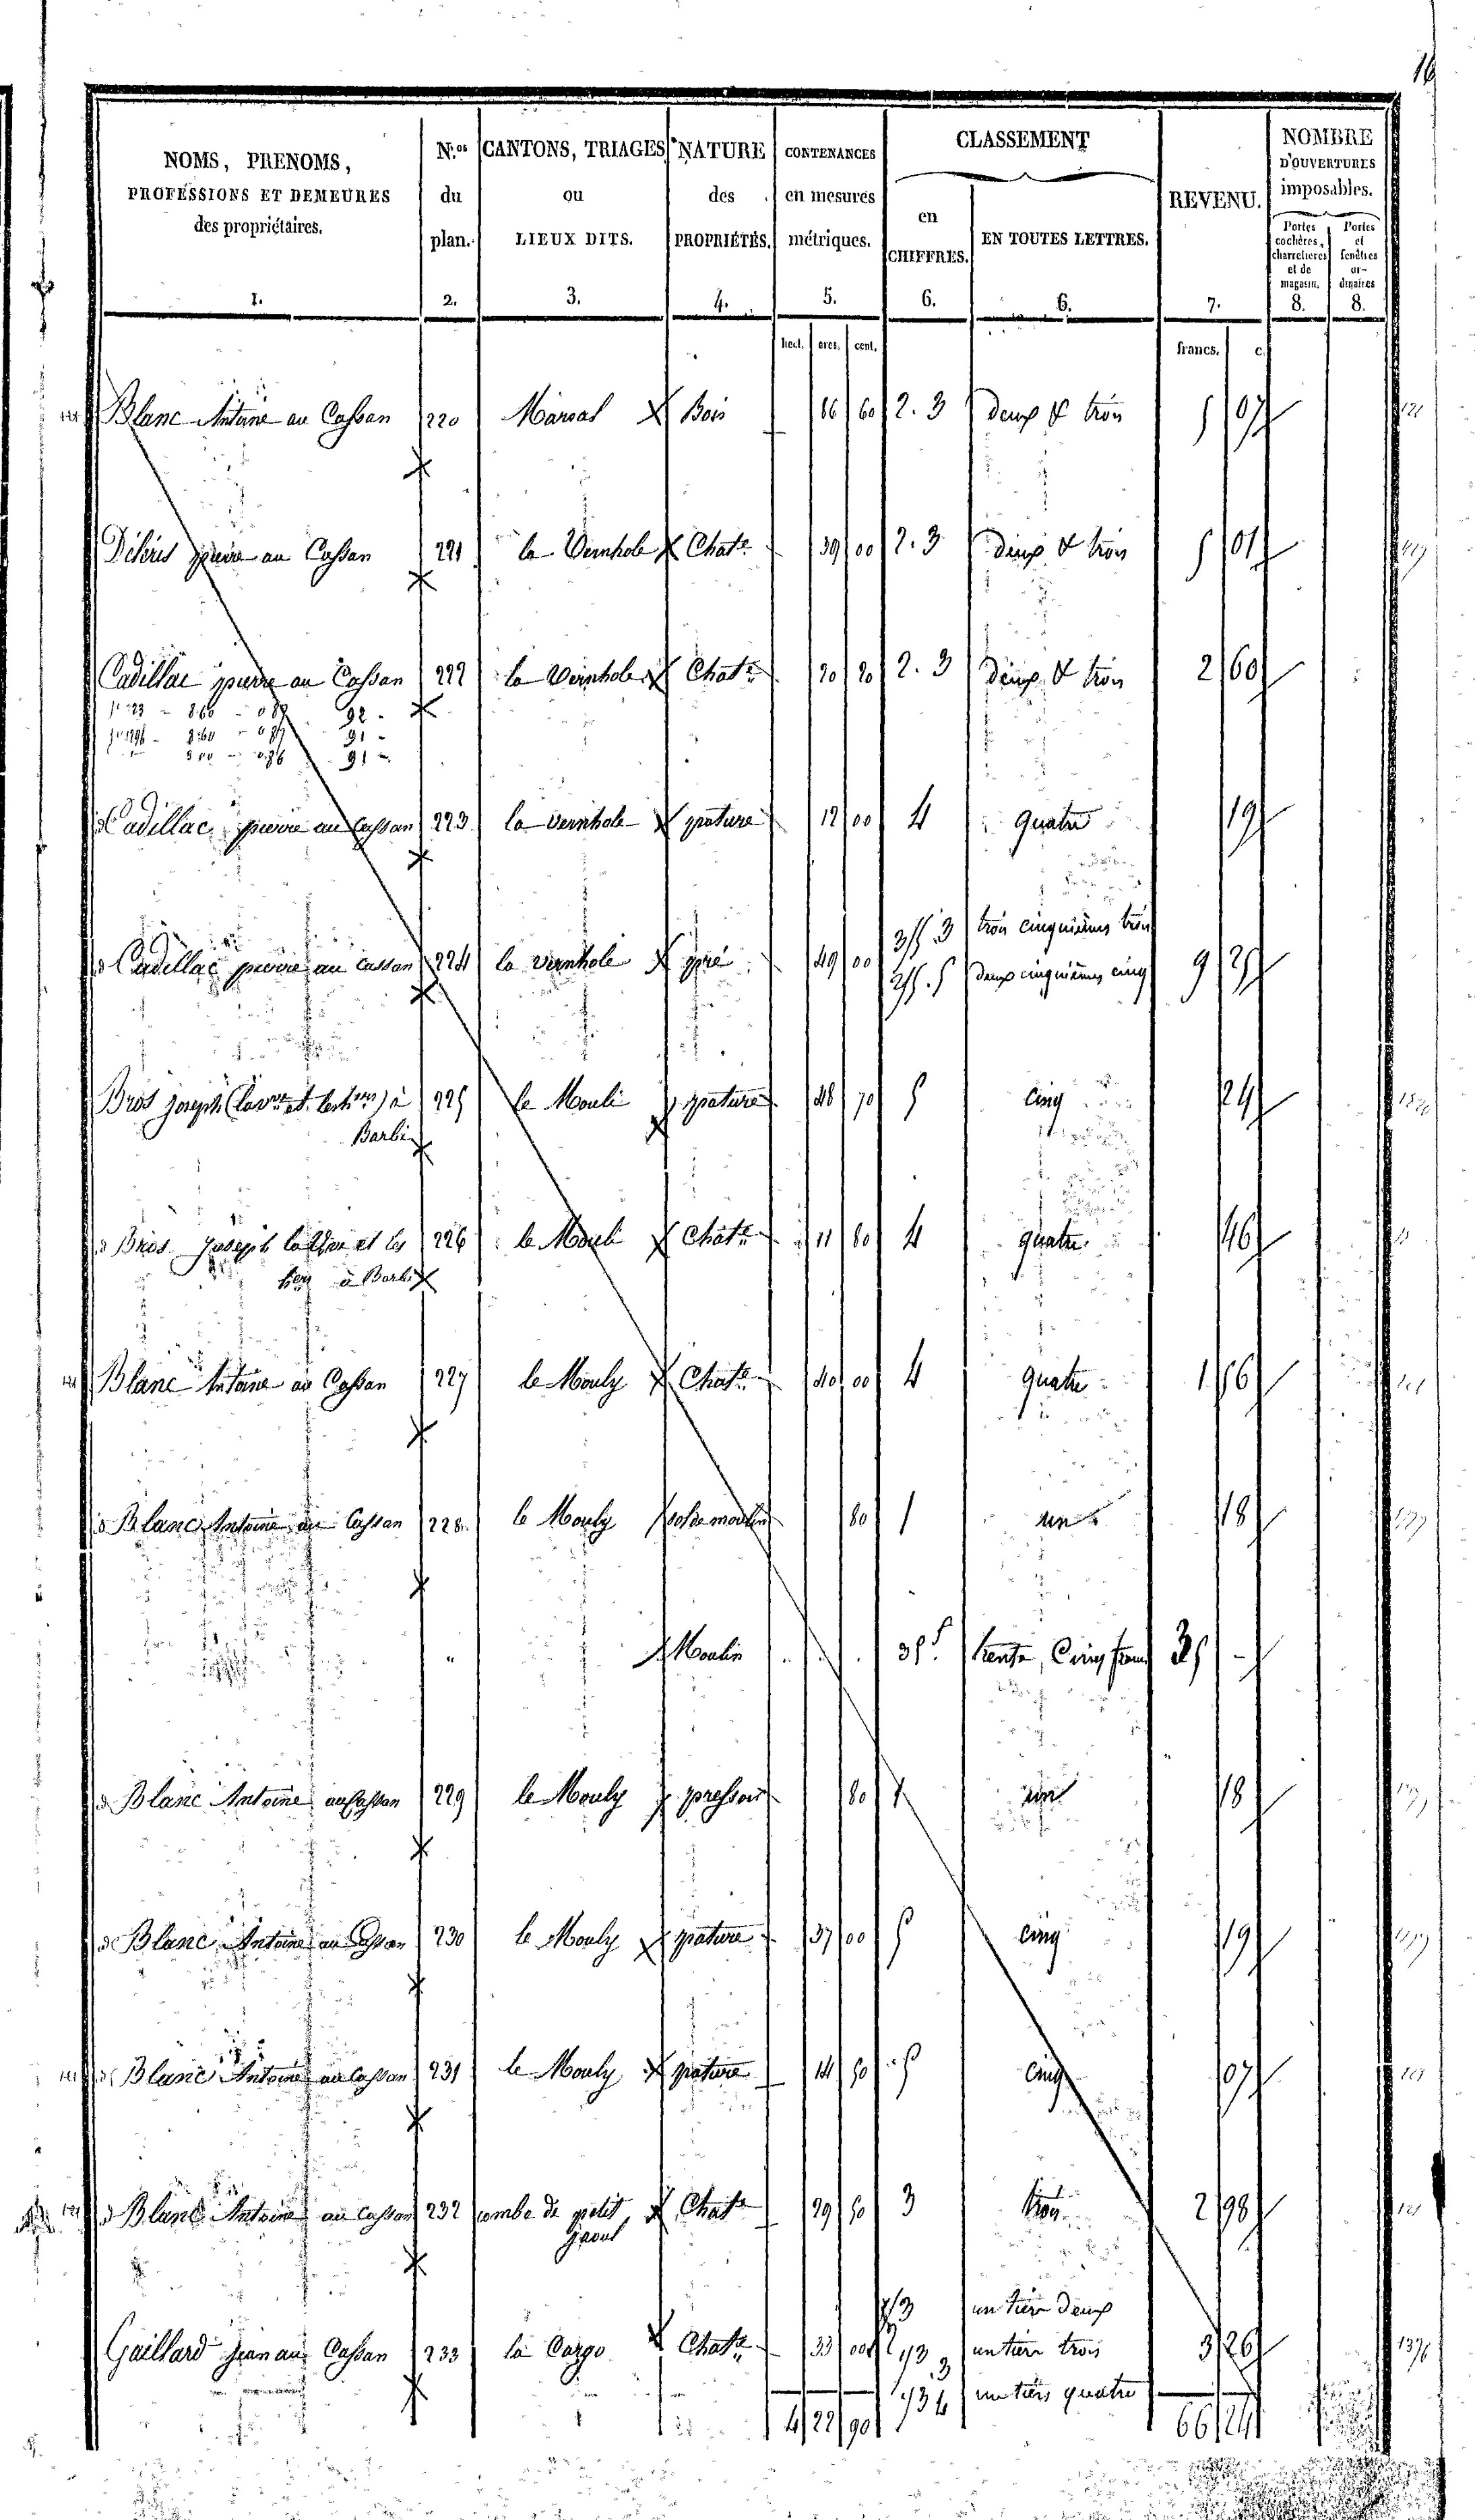 16
NOMS, PRENOMS,
PROFESSIONS ET DEMEURES
des propriétaires.
1.
N.os
du
plan.
2.
CANTONS, TRIAGES
ou
LIEUX DITS.
3.
NATURE
des
PROPRIÉTÉS.
4.
CONTENANCES
en mesures
métriques.
5.
CLASSEMENT
en
CHIFFRES.
6.
EN TOUTES LETTRES.
6.
REVENU.
7.
NOMBRE
D'OUVERTURES
imposables.
Portes
cochères,
charretières
et de
magasin.
8.
Portes
et
fenêtres
or-
dinaires
8.
hect. ares. cent. francs. c.
Blanc Antoine au Cassan 220 Marsal Bois 66 60 2. 3 deux & trois 5 07
pierre au Cassan 221 la Vernhole Chatr 39 00 2. 3 deux & trois 5 01
Cadillac pierre au Cassan 222 la Vernhole Chatr 20 20 2. 3 deux & trois 2 60
92
91
91
Cadillac pierre au Cassan 223 la Vernhole pature 12 00 4 quatre 19
Cadillac pierre au Cassan 224 la Vernhole pré 49 00 3/5 3 trois cinquièmes trois 9 25
2/5. 5 deux cinquièmes cinq
Bros Joseph à 225 le Mouli pature 48 70 5 cinq 24
Barbi
Bros Joseph et les 226 le Mouli Chatr 11 80 4 quatre 46
à Barbi
Blanc Antoine au Cassan 227 le Mouly Chatr 40 00 4 quatre 1 56
Blanc Antoine au Cassan 228 le Mouly sol de moulin 80 1 un 18
" Moulin 35f trente, Cinq francs 35 -
Blanc Antoine au Cassan 229 le Mouly pressoir 80 1 un 18
Blanc Antoine au Cassan 230 le Mouly pature 37 00 5 cinq 19
Blanc Antoine au Cassan 231 le Mouly pature 14 50 5 cinq 07
Blanc Antoine au Cassan 232 combe de petit Chatr 29 50 3 trois 2 98
Gaillard Jean au Cassan 233 la Cazgo Chatr 33 00 un tiers deux 3 26
1/3 3 un tiers trois
1/3 4 un tiers quatre
4 22 90 66 24